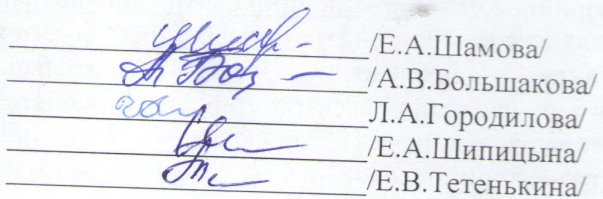 /Е.А.Шамова/
/А.В.Большакова/
Л.А.Городилова/
/Е.А.Шипицына/
/Е.В.Тетенькина/